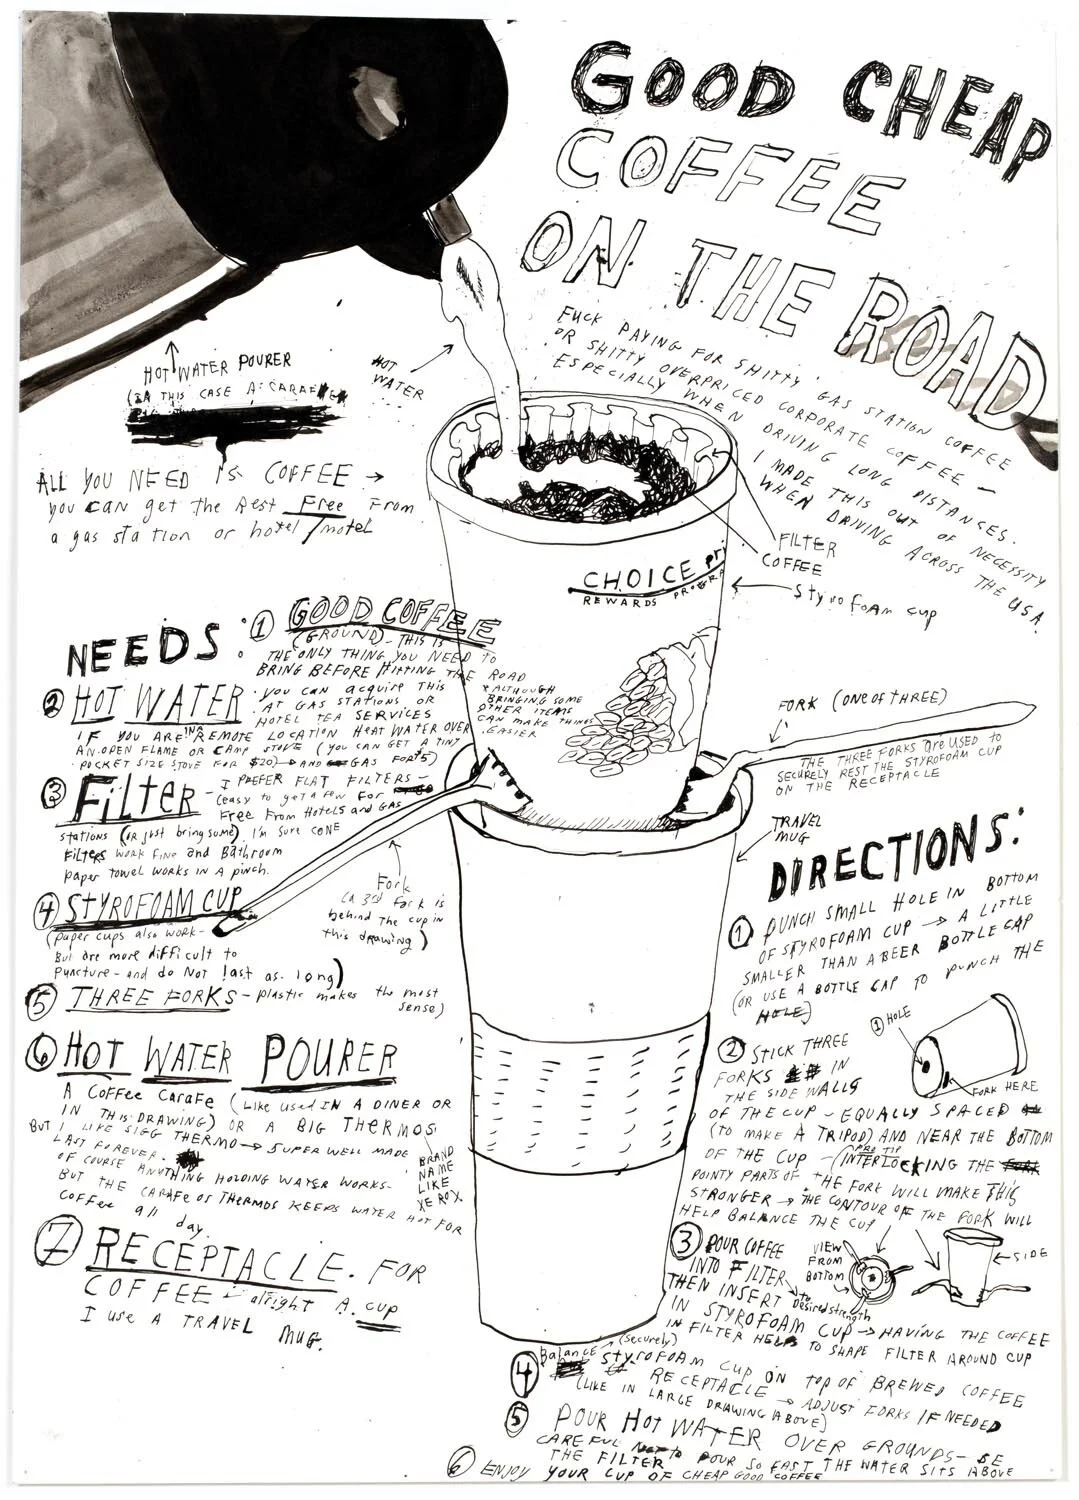 GOOD CHEAP
COFFEE
ON THE ROAD
FUCK PAYING FOR SHITTY GAS STATION COFFEE
OR SHITTY OVERPRICED CORPORATE COFFEE —
ESPECIALLY WHEN DRIVING LONG DISTANCES.
I MADE THIS OUT OF NECESSITY
WHEN DRIVING ACROSS THE USA.
HOT WATER POURER
(IN THIS CASE A CARAFE
HOT
WATER
ALL YOU NEED IS COFFEE →
you can get the Rest Free From
a gas station or hotel/motel
FILTER
COFFEE
Styrofoam cup
CHOICE
REWARDS
NEEDS:
① GOOD COFFEE
(GROUND) - THIS IS
THE ONLY THING YOU NEED TO
BRING BEFORE HITTING THE ROAD
* ALTHOUGH
BRINGING SOME
OTHER ITEMS
CAN MAKE THINGS
EASIER
② HOT WATER
• YOU CAN acquire THIS
AT GAS STATIONS OR
HOTEL TEA SERVICES
IF YOU ARE IN A REMOTE LOCATION HEAT WATER OVER
AN OPEN FLAME OR CAMP STOVE (YOU CAN GET A TINY
POCKET SIZE STOVE FOR $20) → AND GAS FOR $5)
③ Filter - I PREFER FLAT FILTERS -
(easy to get a few for
Free From Hotels and GAS
stations (or just bring some) I'm sure CONE
Filters work fine and Bathroom
paper towel works in a pinch.
④ STYROFOAM CUP
(paper cups also work -
But are more difficult to
Puncture - and do Not last as long)
⑤ THREE FORKS - plastic makes the most
sense)
⑥ HOT WATER POURER
A Coffee Carafe (Like used IN A DINER OR
IN THIS DRAWING) OR A BIG THERMOS
BUT I LIKE SIGG THERMO → SUPER WELL MADE
LAST FOREVER.
OF COURSE ANYTHING HOLDING WATER WORKS -
BUT THE CARAFE OR THERMOS KEEPS WATER HOT FOR
Coffee all day.
BRAND
NAME
LIKE
XEROX
⑦ RECEPTACLE. FOR
COFFEE - alright A cup
I use A TRAVEL MUG.
FORK (ONE OF THREE)
THE THREE FORKS are USED to
SECURELY REST THE STYROFOAM CUP
ON THE RECEPTACLE
TRAVEL
MUG
Fork
(A 3rd Fork is
behind the cup in
this drawing)
DIRECTIONS:
① PUNCH SMALL HOLE IN BOTTOM
OF STYROFOAM CUP → A LITTLE
SMALLER THAN A BEER BOTTLE CAP
(OR USE A BOTTLE CAP TO PUNCH THE
HOLE)
① HOLE
FORK HERE
② STICK THREE
FORKS IN
THE SIDE WALLS
OF THE CUP - EQUALLY SPACED
(TO MAKE A TRIPOD) AND NEAR THE BOTTOM
OF THE CUP - (PRO TIP INTERLOCKING THE
POINTY PARTS OF THE FORK WILL MAKE THIS
STRONGER → THE CONTOUR OF THE FORK WILL
HELP BALANCE THE CUP
③ POUR COFFEE
INTO FILTER to Desired strength
THEN INSERT
IN STYROFOAM CUP → HAVING THE COFFEE
IN FILTER HELPS TO SHAPE FILTER AROUND CUP
VIEW
FROM
BOTTOM
SIDE
④ Balance (securely)
STYROFOAM CUP ON TOP OF BREWED COFFEE
RECEPTACLE → ADJUST FORKS IF NEEDED
(LIKE IN LARGE DRAWING ABOVE)
⑤ POUR HOT WATER OVER GROUNDS - BE
CAREFUL NOT to POUR SO FAST THE WATER SITS ABOVE
THE FILTER
⑥ ENJOY YOUR CUP OF CHEAP GOOD COFFEE